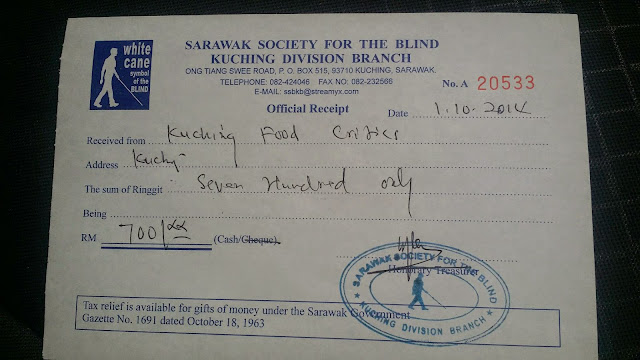 white
cane
symbol
of the
BLIND
SARAWAK SOCIETY FOR THE BLIND
KUCHING DIVISION BRANCH
ONG TIANG SWEE ROAD, P. O. BOX 515, 93710 KUCHING, SARAWAK.
TELEPHONE: 082-424046 FAX NO: 082-232566
E-MAIL: ssbkb@streamyx.com
No. A 20533
Official Receipt
Date 1.10.2014
Received from Kuching Food Critics
Address Kuching
The sum of Ringgit Seven Hundred only
Being
RM 700/xx (Cash/Cheque).
Honorary Treasurer
SARAWAK SOCIETY FOR THE BLIND
KUCHING DIVISION BRANCH
Tax relief is available for gifts of money under the Sarawak Government
Gazette No. 1691 dated October 18, 1963